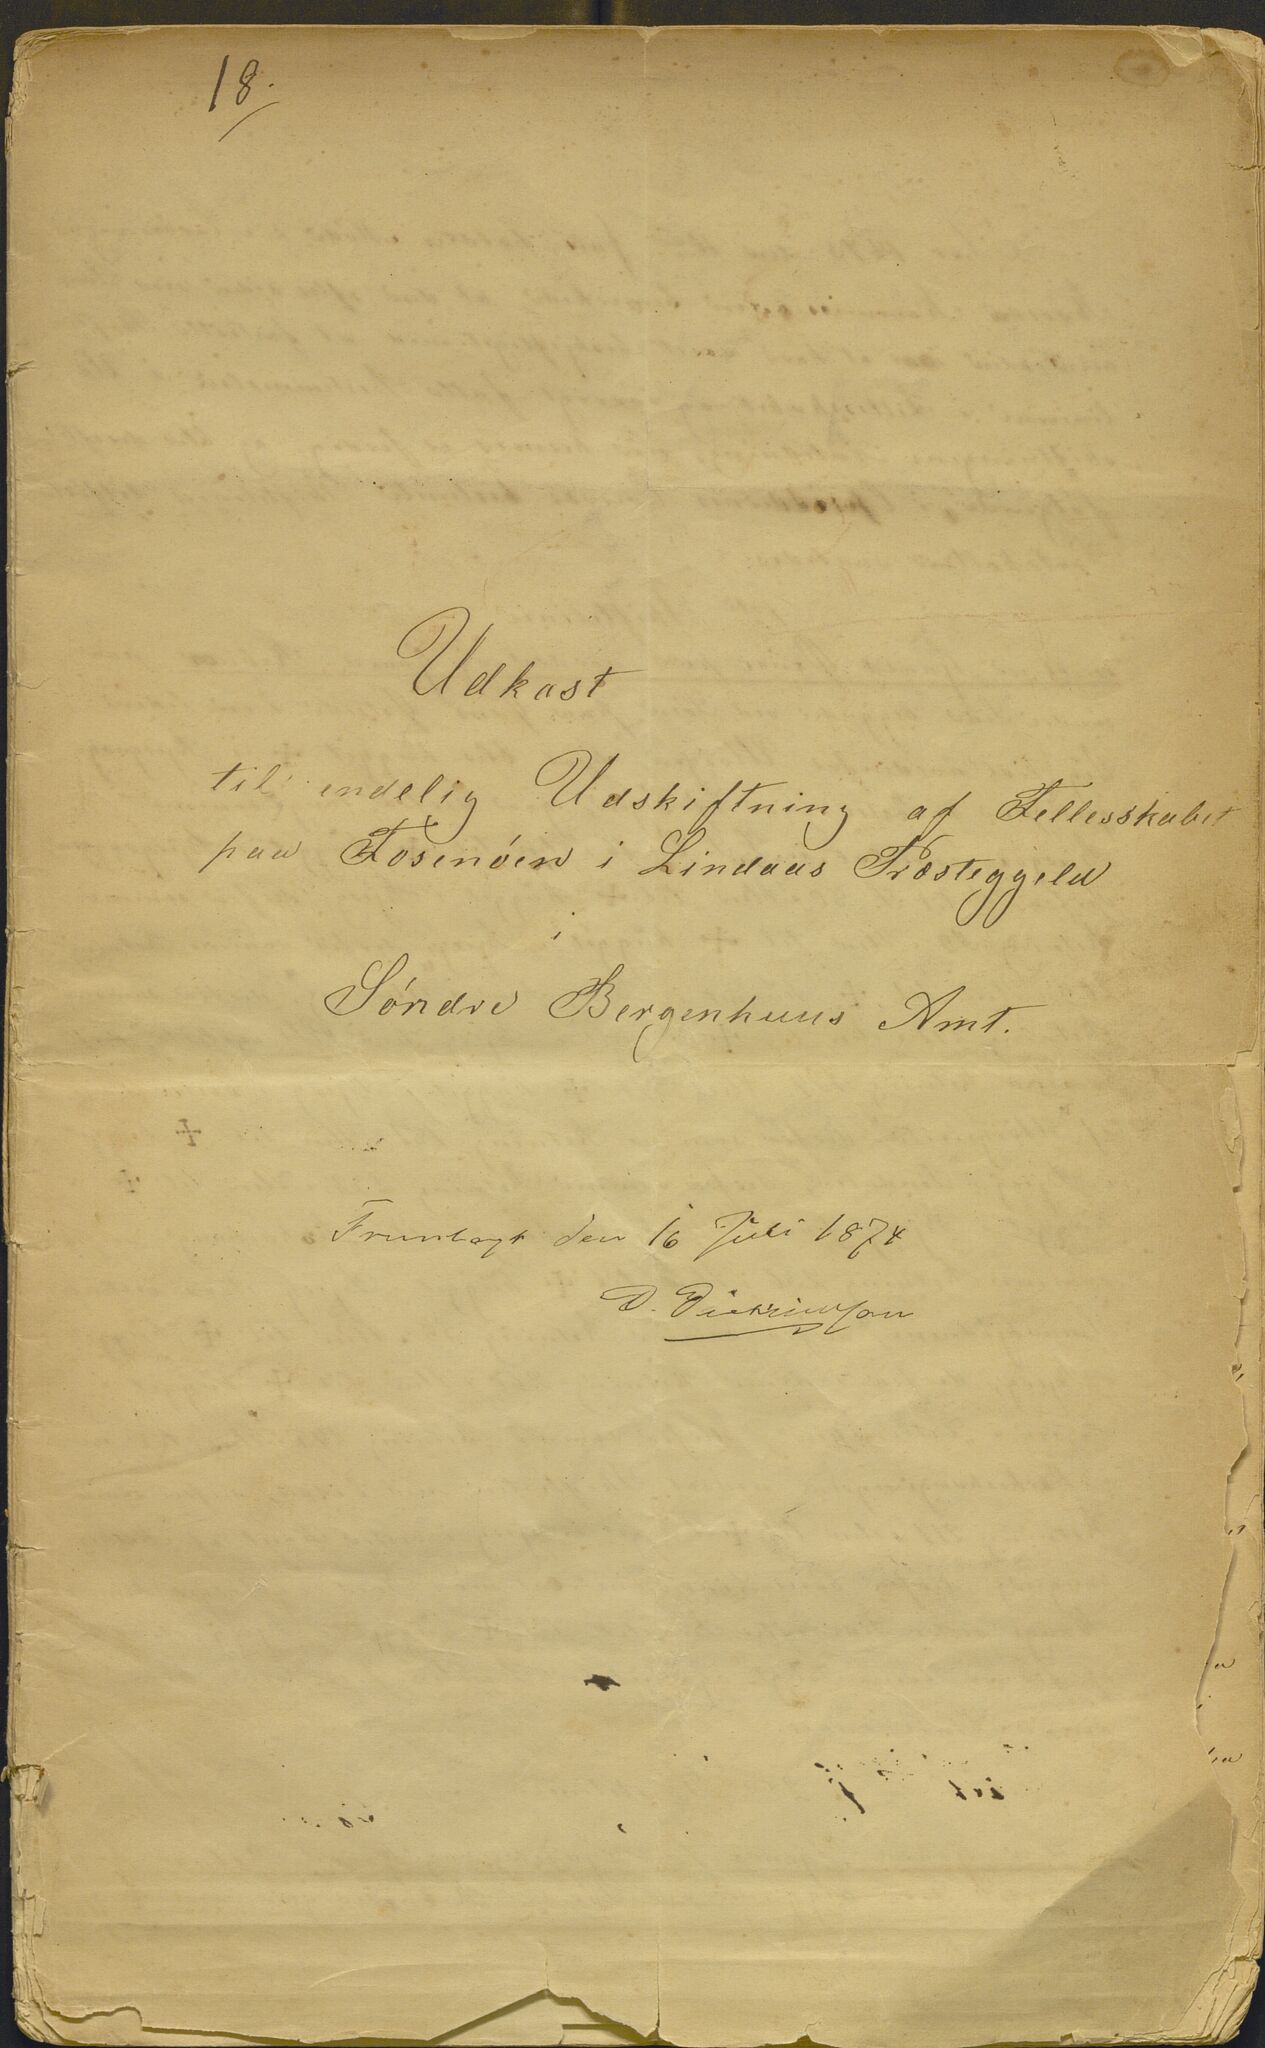 18.
Udkast
til endelig Udskiftning af Fellesskabet
paa Fosenøen i Lindaas Præsteggeld
i
Søndre Bergenhuus Amt.
Fremlagt den 16 Juli 1874